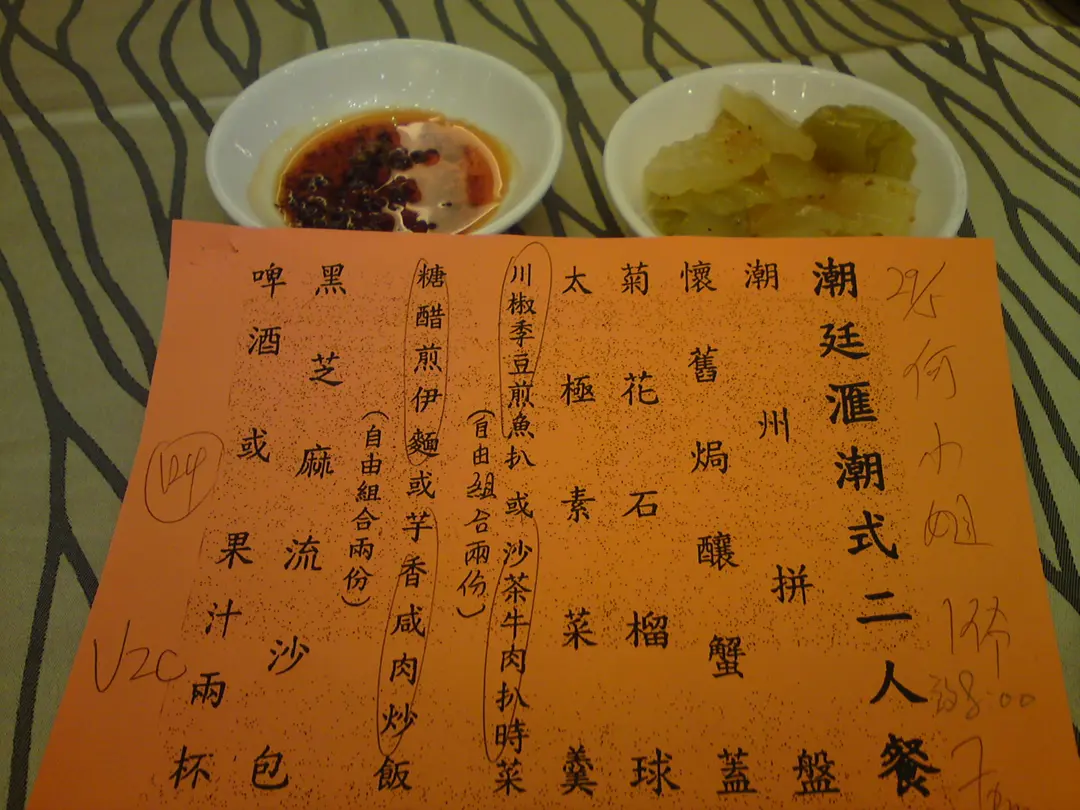 29/5
何小姐
8:00
潮廷滙潮式二人餐
潮州拼盤
懷舊焗釀蟹蓋
菊花石榴球
太極素菜羹
川椒季豆煎魚扒或沙茶牛肉扒時菜
(自由組合兩份)
糖醋煎伊麵或芋香咸肉炒飯
(自由組合兩份)
黑芝麻流沙包
啤酒或果汁兩杯
V2C